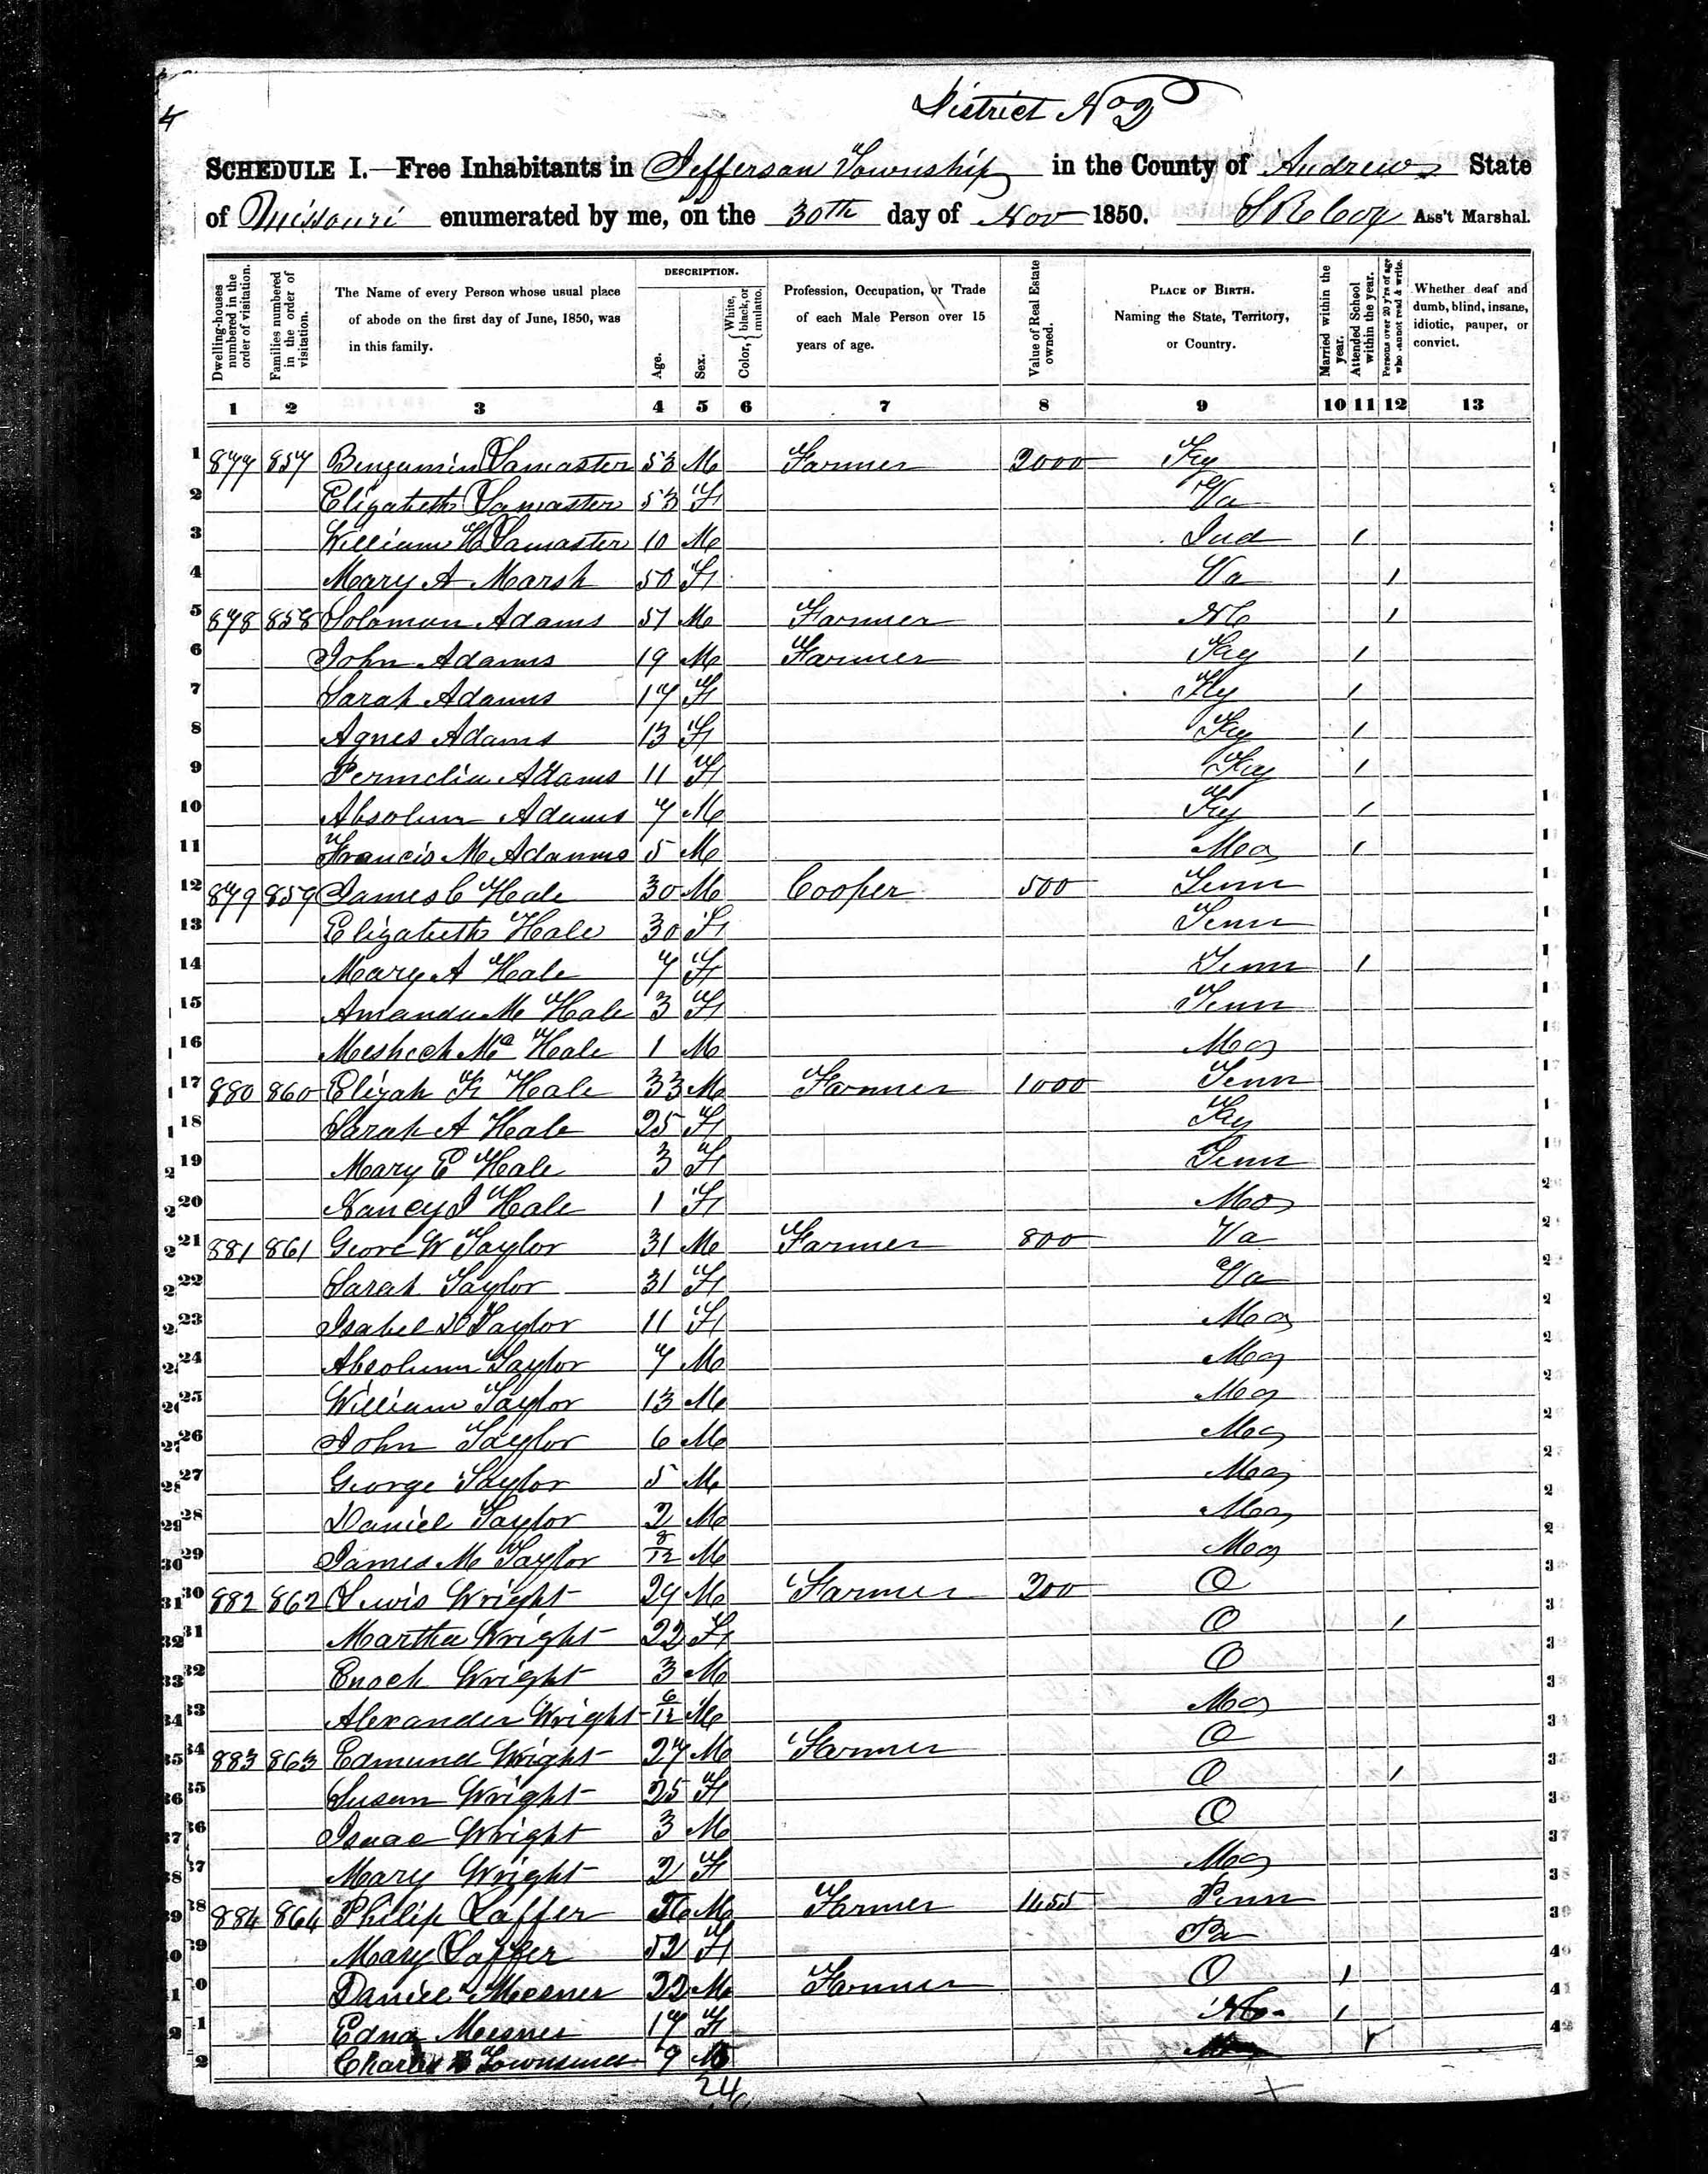 4
District No 2
SCHEDULE I.—Free Inhabitants in Jefferson Township in the County of Andrew State
of Missouri enumerated by me, on the 30th day of Nov 1850. Ass't Marshal.
Dwelling-houses numbered in the order of visitation.
Families numbered in the order of visitation.
The Name of every Person whose usual place of abode on the first day of June, 1850, was in this family.
DESCRIPTION.
Age.
Sex.
Color, { White, black, or mulatto.
Profession, Occupation, or Trade of each Male Person over 15 years of age.
Value of Real Estate owned.
PLACE OF BIRTH. Naming the State, Territory, or Country.
Married within the year.
Attended School within the year.
Persons over 20 y'rs of age who cannot read & write.
Whether deaf and dumb, blind, insane, idiotic, pauper, or convict.
1 2 3 4 5 6 7 8 9 10 11 12 13
1 877 857 Benjamin Lamaster 53 M Farmer 2000 Ky
2 Elizabeth Lamaster 53 F Va
3 William H Lamaster 10 M Ind 1
4 Mary A Marsh 50 F Va 1
5 878 858 Solomon Adams 51 M Farmer NC 1
6 John Adams 19 M Farmer Ky 1
7 Sarah Adams 17 F Ky 1
8 Agnes Adams 13 F Ky 1
9 Permelia Adams 11 F Ky 1
10 Absolum Adams 7 M Ky 1
11 Francis M Adams 5 M Mo 1
12 879 859 James C Hale 30 M Cooper 500 Tenn
13 Elizabeth Hale 30 F Tenn
14 Mary A Hale 7 F Tenn 1
15 Amanda M Hale 3 F Tenn
16 Meshech Mc Hale 1 M Mo
17 880 860 Elijah F Hale 33 M Farmer 1000 Tenn
18 Sarah A Hale 25 F Ky
19 Mary E Hale 3 F Tenn
20 Nancy J Hale 1 F Mo
21 881 861 Geore W Taylor 31 M Farmer 800 Va
22 Sarah Taylor 31 F Va
23 Isabel Taylor 11 F Mo
24 Absolum Taylor 7 M Mo
25 William Taylor 13 M Mo
26 John Taylor 6 M Mo
27 George Taylor 5 M Mo
28 Daniel Taylor 2 M Mo
29 James M Taylor 8/12 M Mo
30 882 862 Lewis Wright 29 M Farmer 200 O
31 Martha Wright 22 F O 1
32 Enoch Wright 3 M O
33 Alexander Wright 6/12 M Mo
34 883 863 Edmund Wright 27 M Farmer O
35 Susan Wright 25 F O 1
36 Isaac Wright 3 M O
37 Mary Wright 2 F Mo
38 884 864 Philip Laffer M Farmer 1455 Penn
39 Mary Laffer 52 F Pa
40 Daniel Mesner 22 M Farmer O 1
41 Edna Mesner 17 F 1
42 Charles 9 M
24